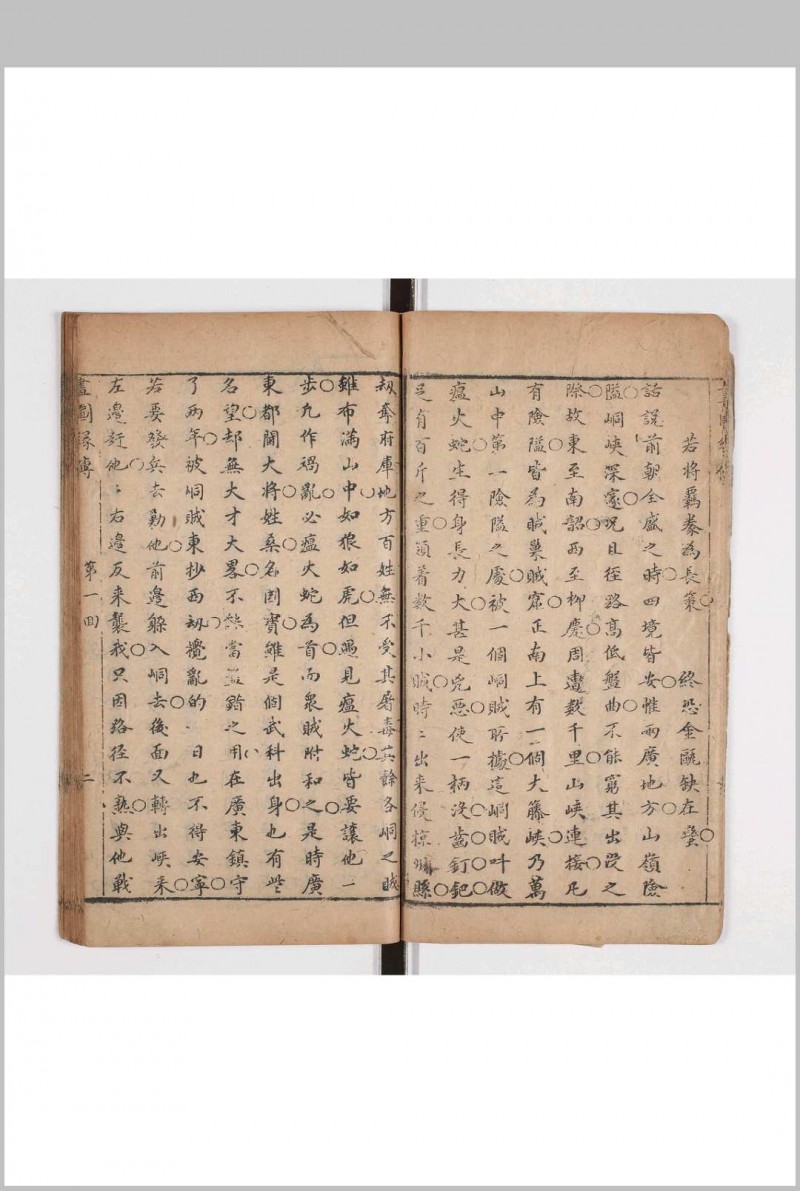 若將羈縻為長策○ 終恐金甌缺在蠻○
話說前朝全盛之時○四境皆安○惟兩廣地方○山嶺險
隘○峒峽深邃○況且徑路高低盤曲○不能窮其出沒之
際○故東至南韶○西至柳慶○周遭數千里○山峽連接○凡
有險隘○皆為賊巢賊窟○正南上有一個大藤峽○乃萬
山中第一險隘之處○被一個峒賊所據○這峒賊叫做
瘟火蛇○生得身長力大○甚是兇惡○使一柄沒齒釘鈀○
足有百斤之重○領著數千小賊○時〻出來侵掠州縣○
劫奪府庫○地方百姓○無不受其屠毒○其餘各峒之賊
雖布滿山中○如狼如虎○但遇見瘟火蛇○皆要讓他一
步○凡作禍亂○必瘟火蛇為首○而眾賊附和之○是時廣
東都閫大將○姓桑○名國寶○雖是個武科出身○也有些
名望○卻無大才大畧○不能當盤錯之用○在廣東鎮守
了兩年○被峒賊東抄西劫○攪亂的一日也不得安寧○
若要發兵去勦他○前邊躲入峒去○後面又轉出峽來○
左邊趕他○他右邊反來襲我○只因路徑不熟○與他戰
畫圖緣傳 第一回 二